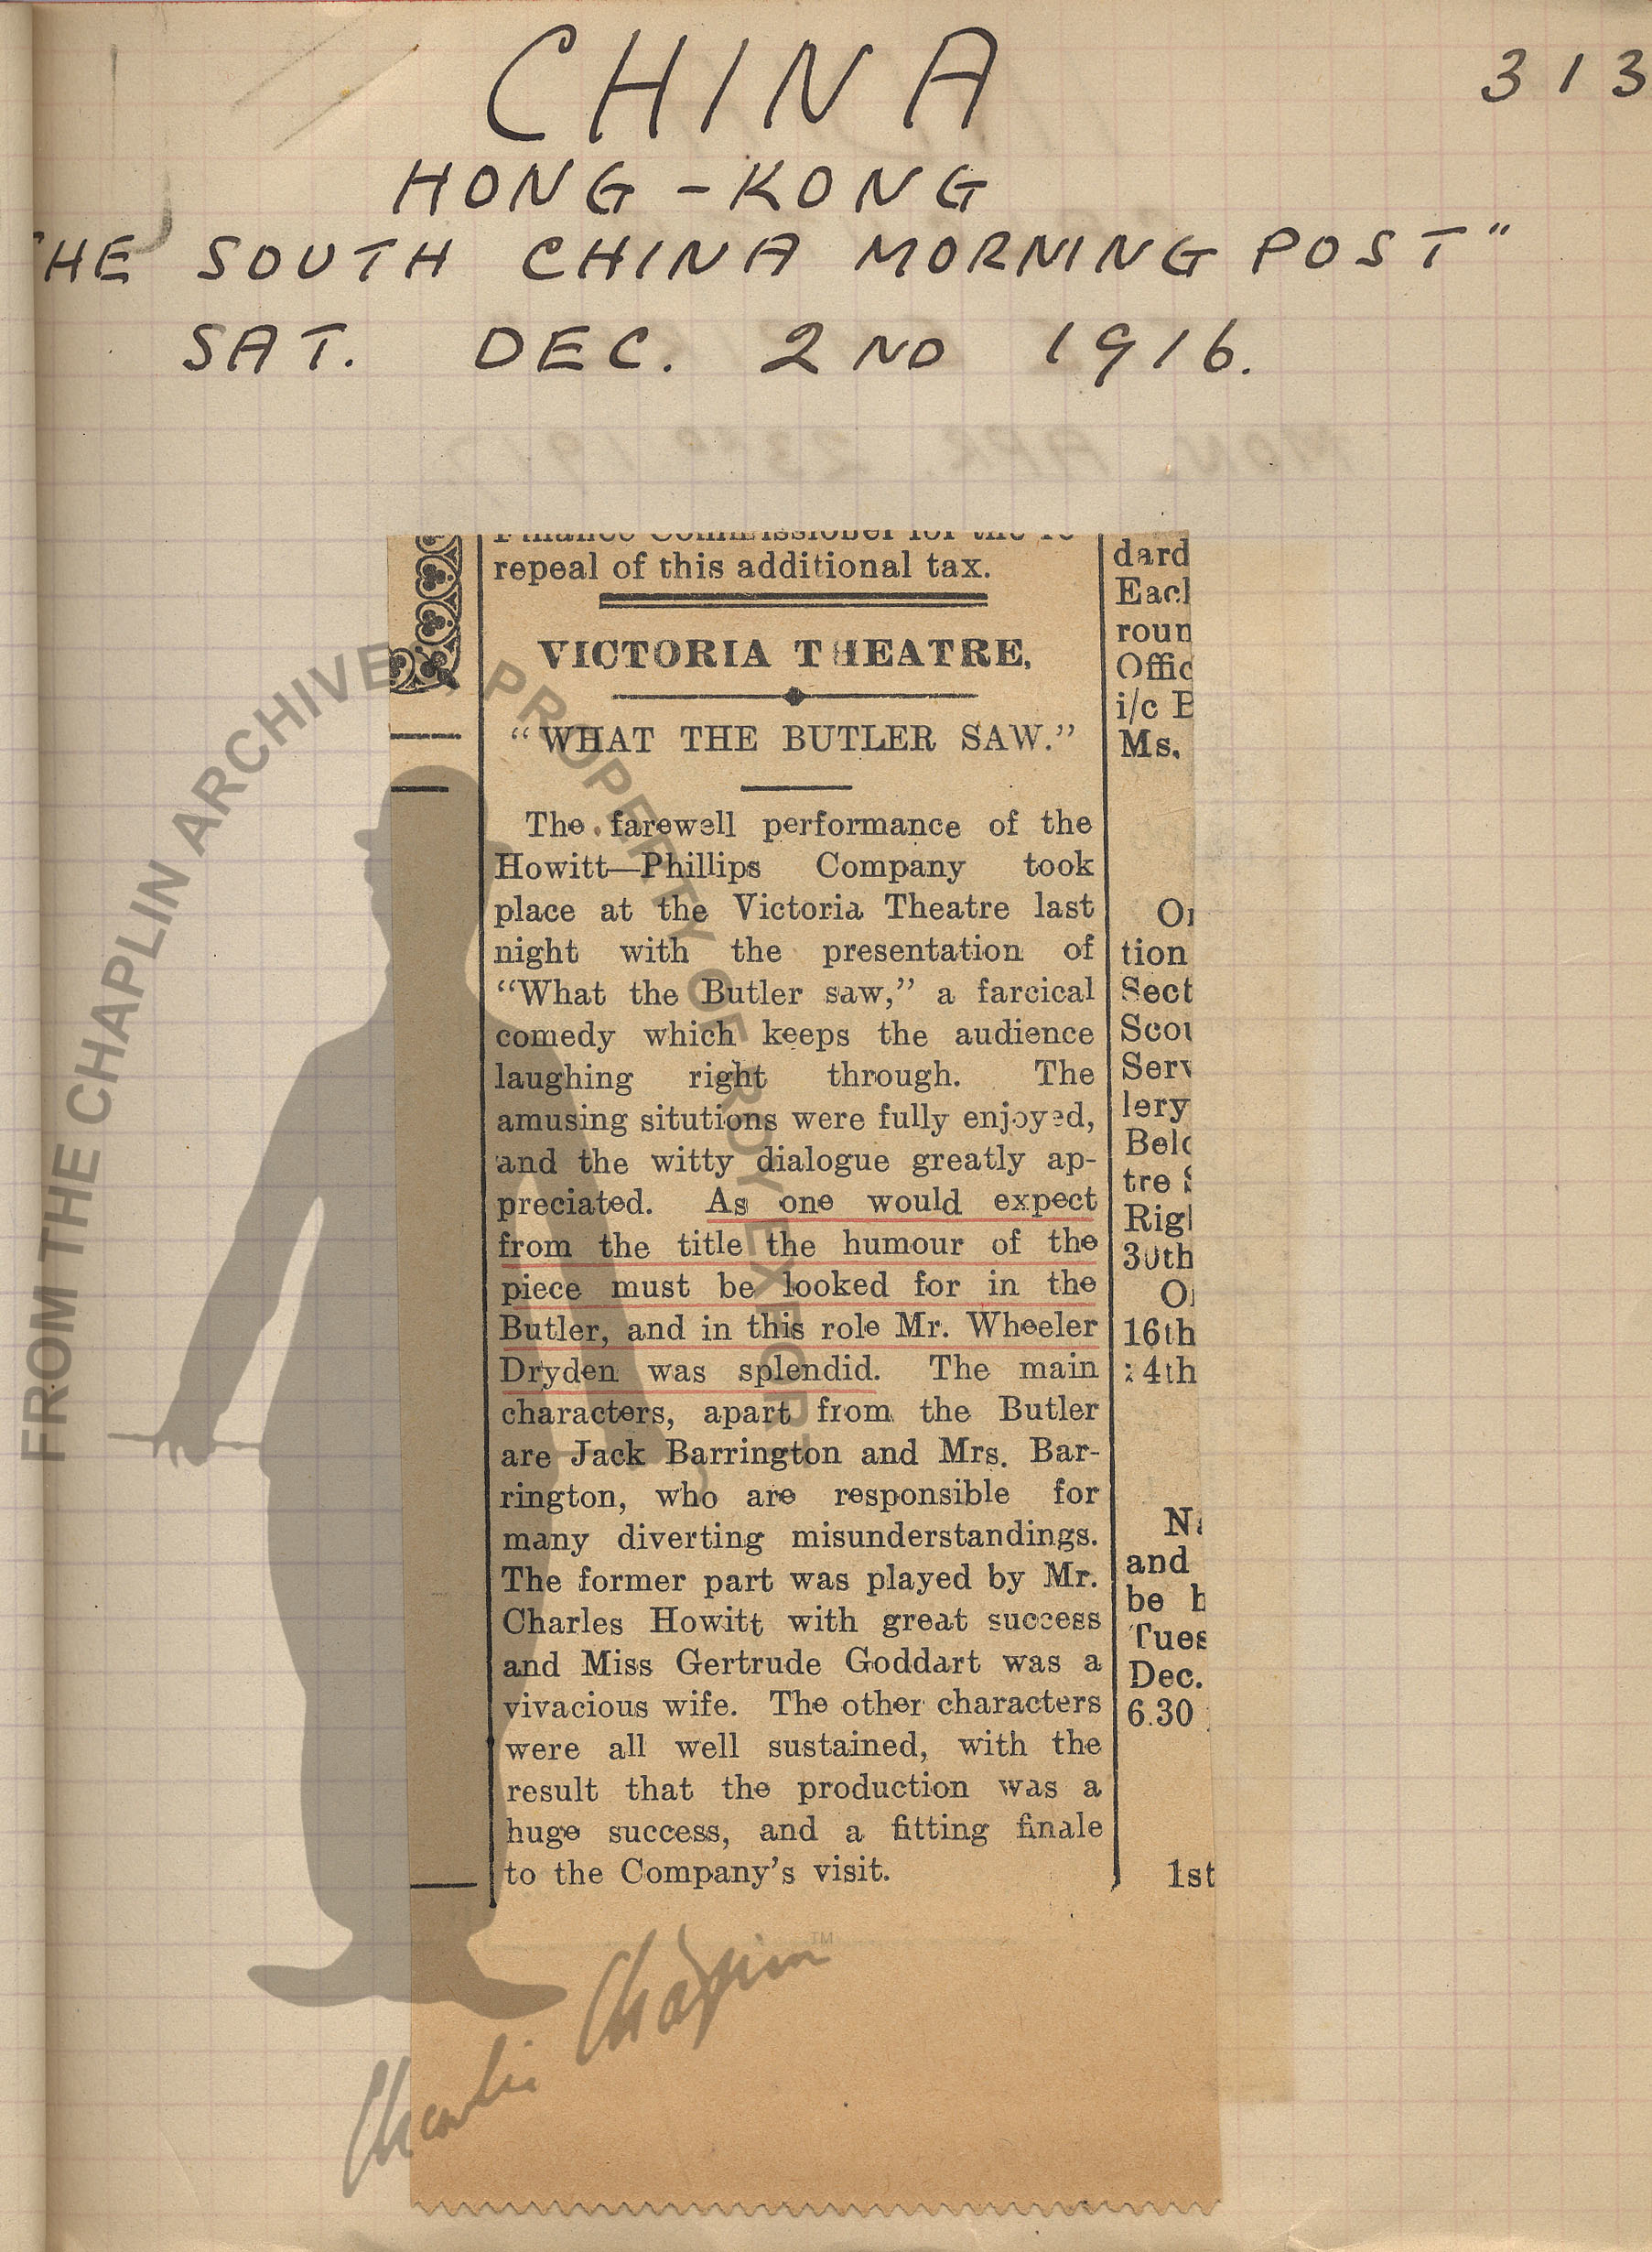 CHINA
313
HONG-KONG
"THE SOUTH CHINA MORNING POST"
SAT. DEC. 2ND 1916.
MON. APR. 23RD 191
repeal of this additional tax.
VICTORIA THEATRE.
"WHAT THE BUTLER SAW."
The farewell performance of the
Howitt—Phillips Company took
place at the Victoria Theatre last
night with the presentation of
"What the Butler saw," a farcical
comedy which keeps the audience
laughing right through. The
amusing situtions were fully enjoyed,
and the witty dialogue greatly ap-
preciated. As one would expect
from the title the humour of the
piece must be looked for in the
Butler, and in this role Mr. Wheeler
Dryden was splendid. The main
characters, apart from the Butler
are Jack Barrington and Mrs. Bar-
rington, who are responsible for
many diverting misunderstandings.
The former part was played by Mr.
Charles Howitt with great success
and Miss Gertrude Goddart was a
vivacious wife. The other characters
were all well sustained, with the
result that the production was a
huge success, and a fitting finale
to the Company's visit.
dard
Eac
roun
Offic
i/c B
Ms.
tion
Sect
Scou
Serv
lery
Belo
tre S
Rig
30th
16th
24th
and
be h
Tues
Dec.
6.30
1st
FROM THE CHAPLIN ARCHIVE
PROPERTY OF ROY EXPORT
Charlie Chaplin
TM